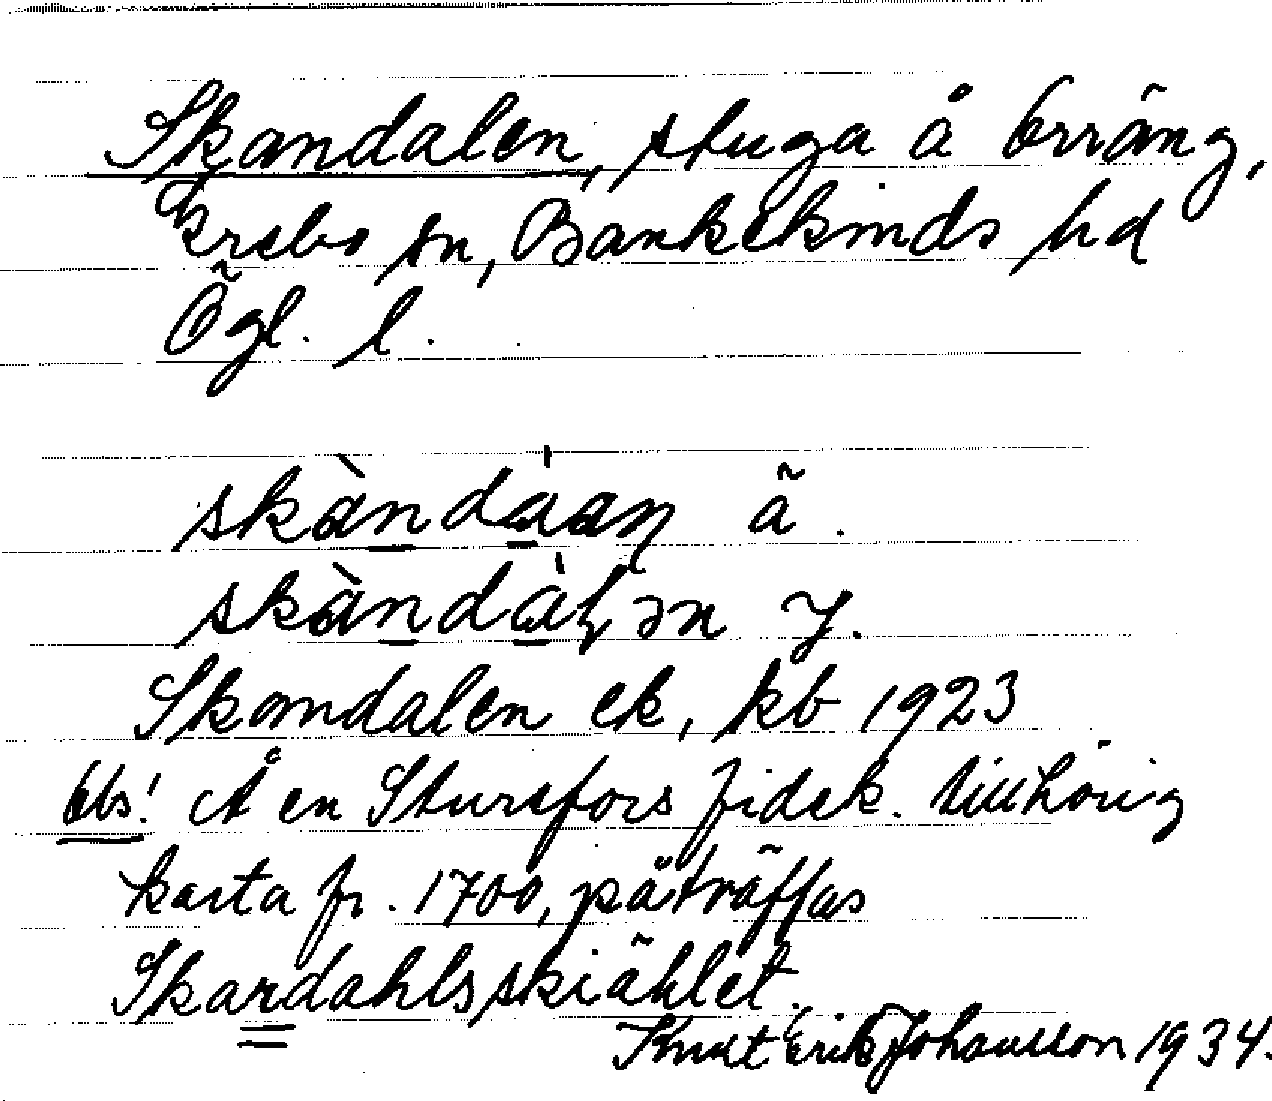 Skandalen, stuga å Orräng,
Grebo sn, Bankekinds hd
Ögl. l.
skàndàan ä.
skàndàlən y.
Skandalen ek, kb 1923
Obs! Å en Sturefors fidek. tillhörig
karta fr. 1700, påträffas
Skardahlsskiählet.
Knut Erik Johansson 1934.